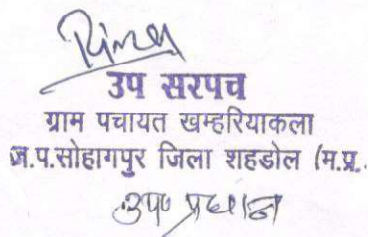 उप सरपच
ग्राम पंचायत खम्हरियाकला
ज.प.सोहागपुर जिला शहडोल (म.प्र.
उप प्रधान